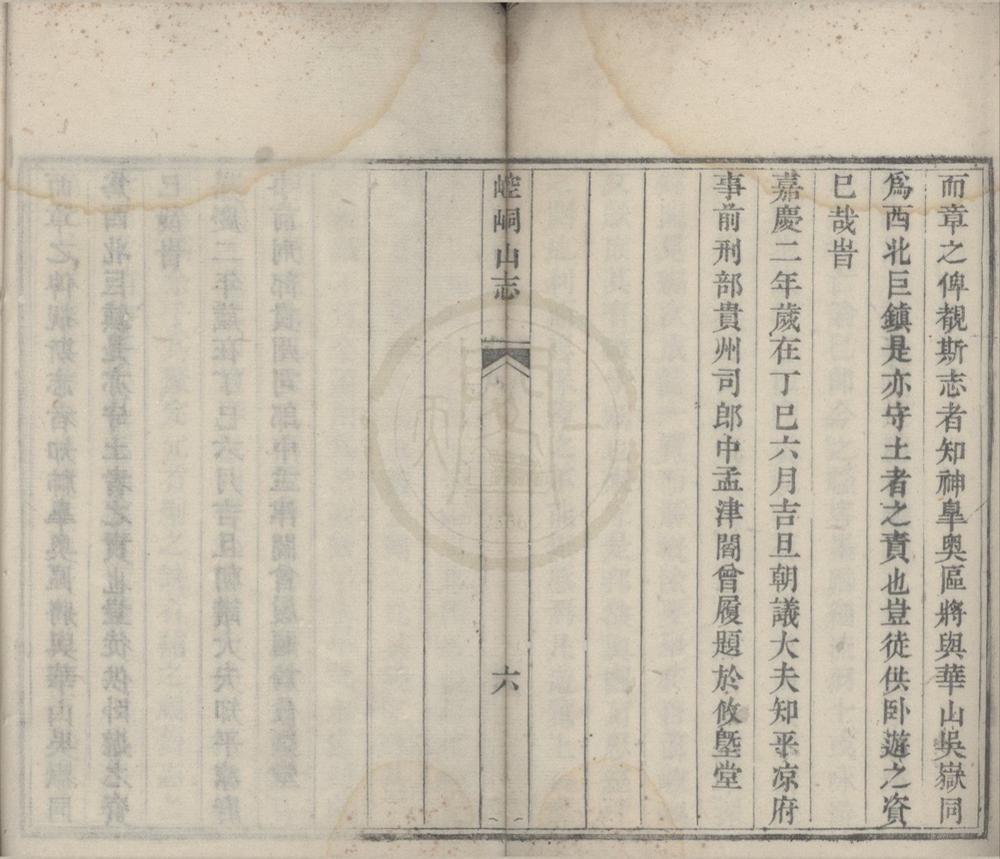 而章之俾覩斯志者知神臯奥區將與華山吳嶽同
爲西北巨鎮是亦守土者之責也豈徒供卧遊之資
已哉旹
嘉慶二年歲在丁巳六月吉旦朝議大夫知平凉府
事前刑部貴州司郎中孟津閻曾履題於攸塈堂
崆峒山志
六